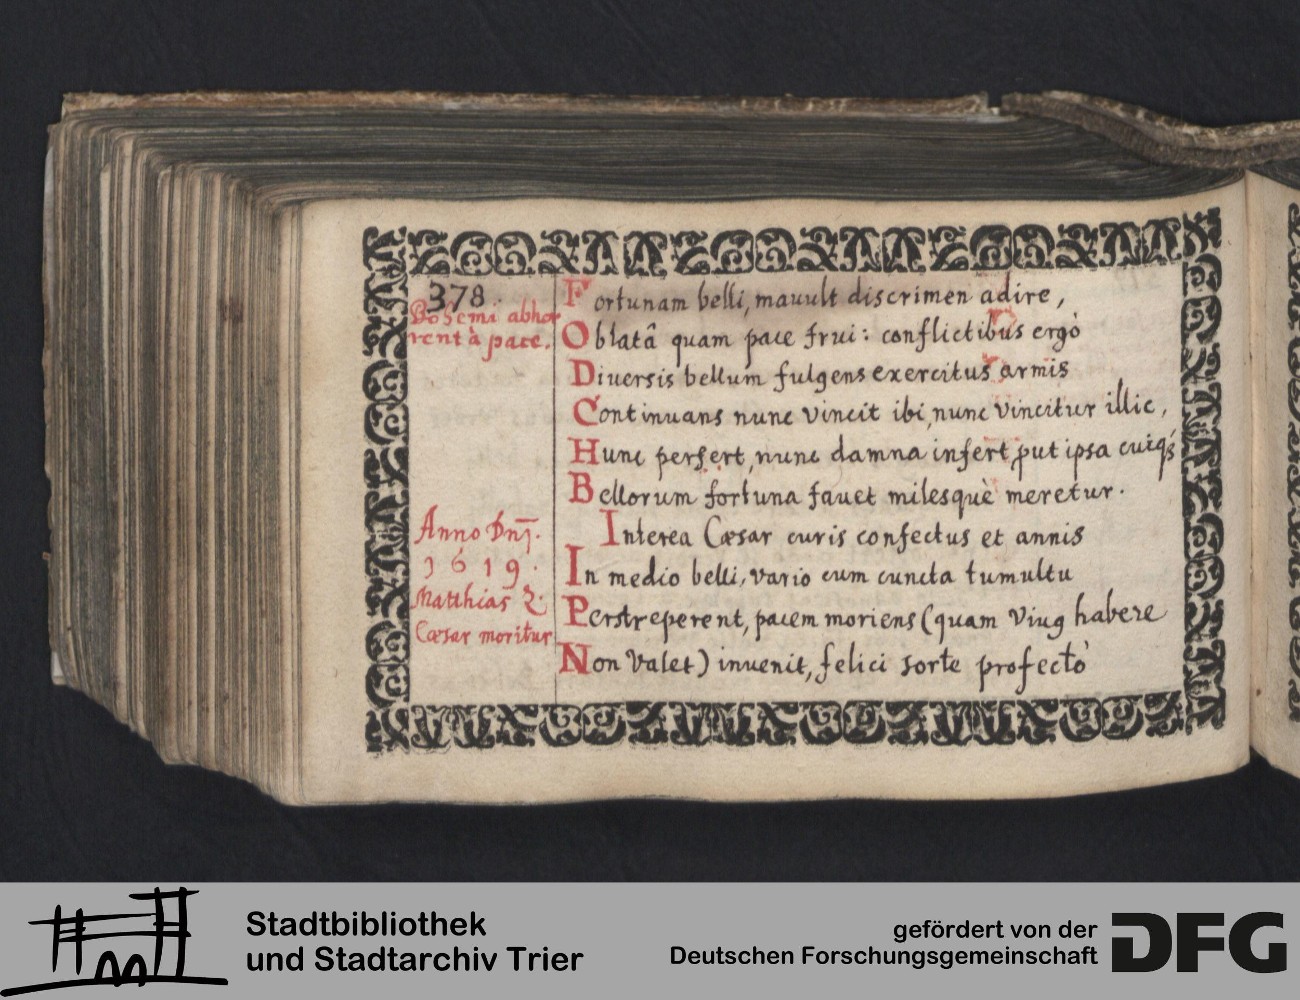 378.
Bohemi abhor
rent à pace.
Fortunam belli, mauult discrimen adire,
Oblatâ quam pace frui: conflictibus ergò
Diuersis bellum fulgens exercitus armis
Continuans nunc vincit ibi, nunc vincitur illic,
Hunc perfert, nunc damna infert, put ipsa cuiqś
Bellorum fortuna fauet milesquè meretur.
Anno Dnj.
1619.
Matthias 2.
Cæsar moritur
Interea Cæsar curis confectus et annis
In medio belli, vario cum cuncta tumultu
Perstreperent, pacem moriens (quam viug habere
Non valet) inuenit, felici sorte profectò
Stadtbibliothek
und Stadtarchiv Trier
gefördert von der
Deutschen Forschungsgemeinschaft
DFG